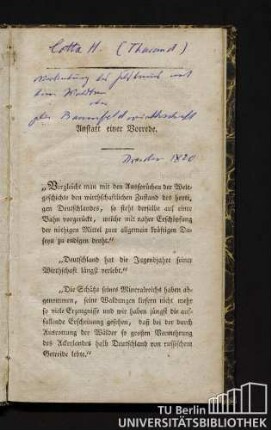 Cotta H. (Tharand)
Verbindung des Feldbaues mit
dem Waldbau
oder
die Baumfeldwirthschaft
Anstatt einer Vorrede.
Dresden 1820
„Vergliche man mit den Ansprüchen der Welt-
geschichte den wirthschaftlichen Zustand des heuti-
gen Deutschlandes, so steht derselbe auf einer
Bahn vorgerückt, welche mit naher Erschöpfung
der nöthigen Mittel zum allgemein kräftigen Da-
seyn zu endigen droht.“
„Deutschland hat die Jugendjahre seiner
Wirthschaft längst verlebt.“
„Die Schätze seines Mineralreichs haben ab-
genommen, seine Waldungen liefern nicht mehr
so viele Erzeugnisse und wir haben jüngst die auf-
fallende Erscheinung gesehen, daß bei der durch
Ausrottung der Wälder so großen Vermehrung
des Ackerlandes halb Deutschland von russischem
Getreide lebte.“
TU Berlin
UNIVERSITÄTSBIBLIOTHEK